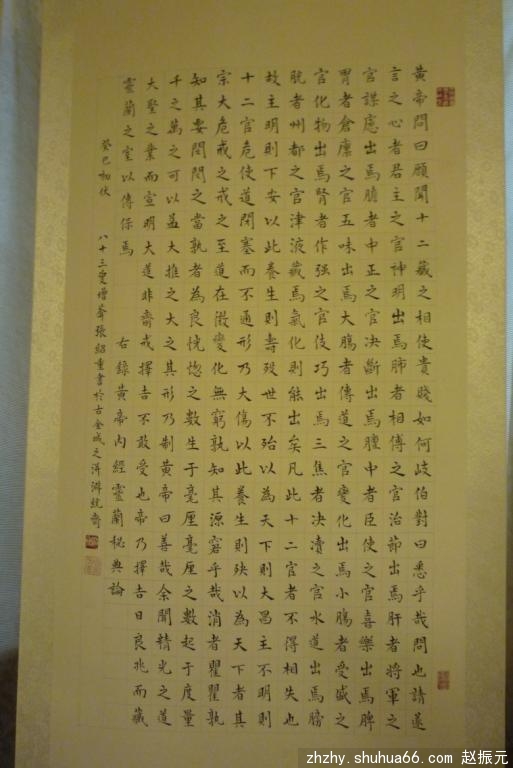 黃帝問曰願聞十二藏之相使貴賤如何岐伯對曰悉乎哉問也請遂
言之心者君主之官神明出焉肺者相傅之官治節出焉肝者將軍之
官謀慮出焉膽者中正之官決斷出焉膻中者臣使之官喜樂出焉脾
胃者倉廩之官五味出焉大腸者傳道之官變化出焉小腸者受盛之
官化物出焉腎者作强之官伎巧出焉三焦者决瀆之官水道出焉膀
胱者州都之官津液藏焉氣化則能出矣凡此十二官者不得相失也
故主明則下安以此養生則壽殁世不殆以為天下則大昌主不明則
十二官危使道閉塞而不通形乃大傷以此養生則殃以為天下者其
宗大危戒之戒之至道在微變化無窮孰知其源窘乎哉消者瞿瞿孰
知其要閔閔之當孰者為良恍惚之數生于毫厘毫厘之數起于度量
千之萬之可以益大推之大之其形乃制黃帝曰善哉余聞精光之道
大聖之業而宣明大道非齋戒擇吉不敢受也帝乃擇吉日良兆而藏
靈蘭之室以傳保焉 右錄黃帝內經靈蘭秘典論
癸巳初伏 八十三叟增 張紹重書於古金城之洴澼 齋
zhzhy.shuhua66.com 赵振元